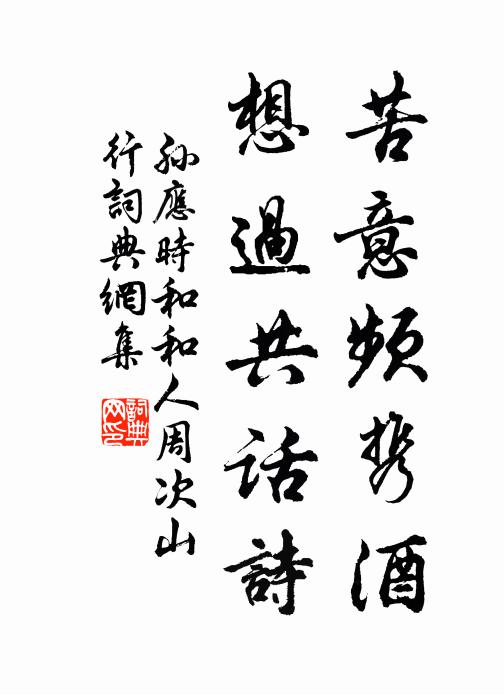 苦意頻携酒
想過共话詩
孫應時和和人周次山
行詞典網集
詞典
网印